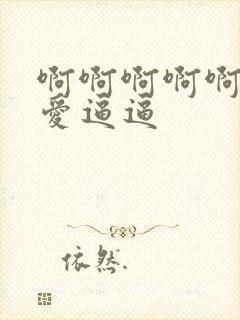 啊啊啊啊啊
爱逼逼
依然.